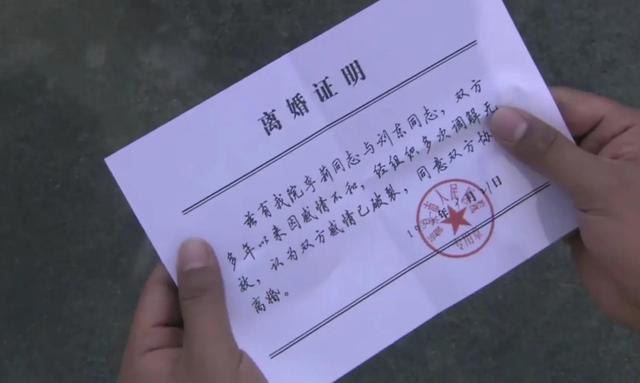 离婚证明
兹有我院李莉同志与刘京同志，双方
多年以来因感情不和，经组织多次调解无
效，认为双方感情已破裂，同意双方协
离婚。